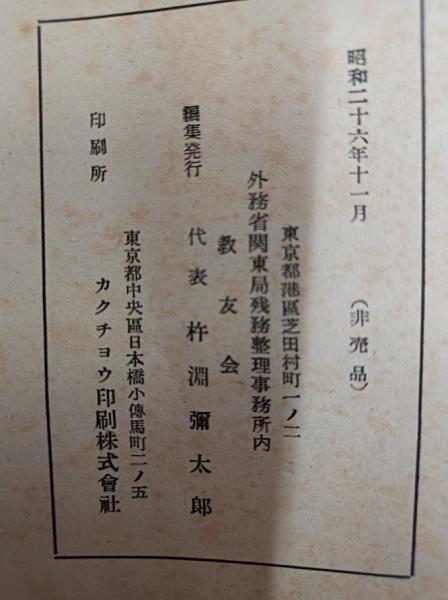 昭和二十六年十一月 (非売品)
東京都港區芝田村町一ノ二
外務省関東局残務整理事務所内
教友会
編集発行 代表 杵淵彌太郎
東京都中央區日本橋小傳馬町二ノ五
印刷所 カクチョウ印刷株式會社